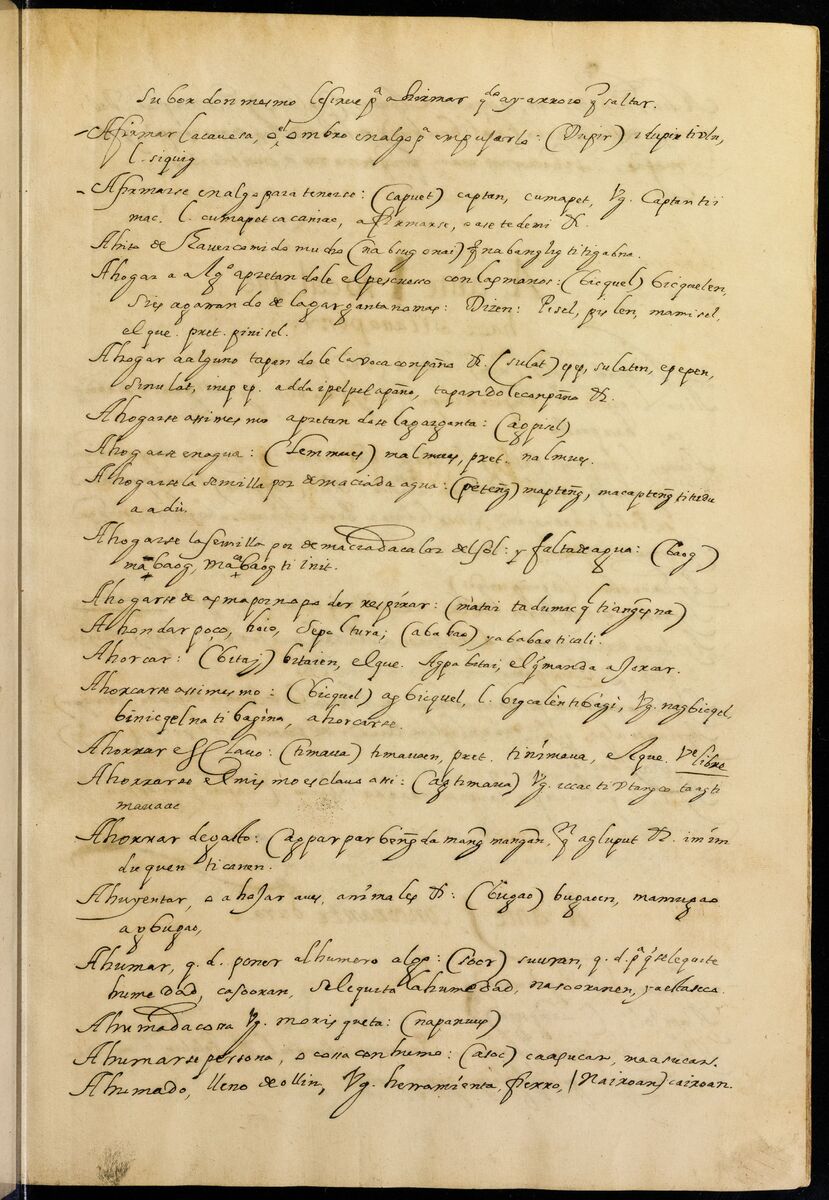 su bordon mesmo le sirve pª ahirmar qdo ay arroio q saltar.
Afirmar la cavesa, o el ombro en algo pª empujarlo: (Dupir) idupir ti Vlu,
l. siquig
Afirmarse en algo para tenerse: (capuet) captan, cumapet, Vg. Captan ti
mac. l. cumapet ca caniac, afirmarse, o asete de mi &.
Ahito de haver comido mucho (nabsug onai) nabanglig ti tigabna.
Ahogar a algº apretandole el pescuesso con las manos: (bicquel) bicquelen,
si es agarrando de la garganta no mas: Dizen: Pisel, pislen, mamisel,
el que. pret. pinisel.
Ahogar a alguno tapandole la voca con paño &. (sulat) epep, sulaten, epepen,
sinulat, inepep. adda ipelpel a paño, tapandole con paño &.
Ahogarse assi mesmo apretandose la garganta: (agpisel)
Ahogarse en agua: (lemmes) malmes, pret. nalmes.
Ahogarse la semilla por demaciada agua: (peteng) mapteng, macapteng ti tedu
a adu.
Ahogarse la semilla por demaciada calor del sol: y falta de agua: (baog)
mabaog, macabaog ti init.
Ahogarse de asma por no poder respirar: (matai ta dumacql ti angesna)
Ahondar poço, hoio, sepoltura; (ababao) yababao ti cali.
Ahorcar: (bitaj) bitaien, el que. Agpabitai, el q manda ahorcar.
Ahorcarse assi mesmo: (bicquel) agbicquel, l. bigcalen ti bagi, Vg. nagbicqel,
binicqel na ti bagina, ahorcarse.
Ahorrar esclavo: (timaua) timauaen, pret. tinimaua, el que. Ve libro
Ahorrarse el mismo esclavo assi: (agtimaua) Vg. iccac ti Vtangco ta agti
mauaac
Ahorrar de gasto: (agparparbeng da mang mangan, q agluput &. imim
duquen ti canen.
Ahuyentar, o ahojar aues, animales &: (bugao) bugaoen, mamugao
agbugao,
Ahumar, q. d. poner al humero algo: (soor) suuran, q. d. pª q se le quite
humedad, casooran, se le quita la humedad, nasooranen, ya esta seca.
Ahumada cossa Vg. morisqueta: (napanues)
Ahumarse persona, o cossa con humo: (asoc) caasucan, maasucan.
Ahumado, lleno de ollin, Vg. herramienta, fierro, (Nairoan) cairoan.